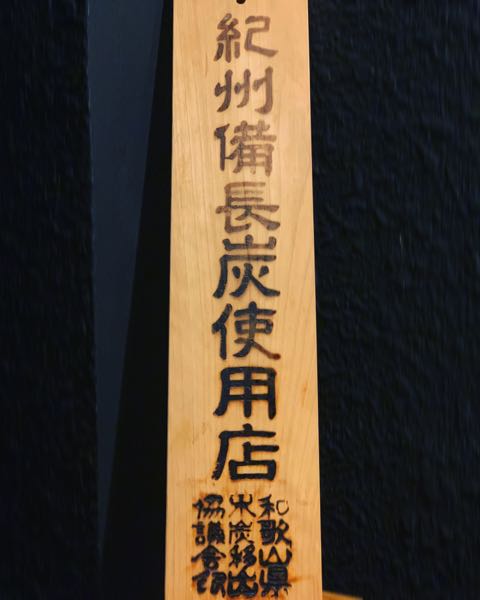 紀州備長炭使用店
和歌山県
木炭移出
協議会